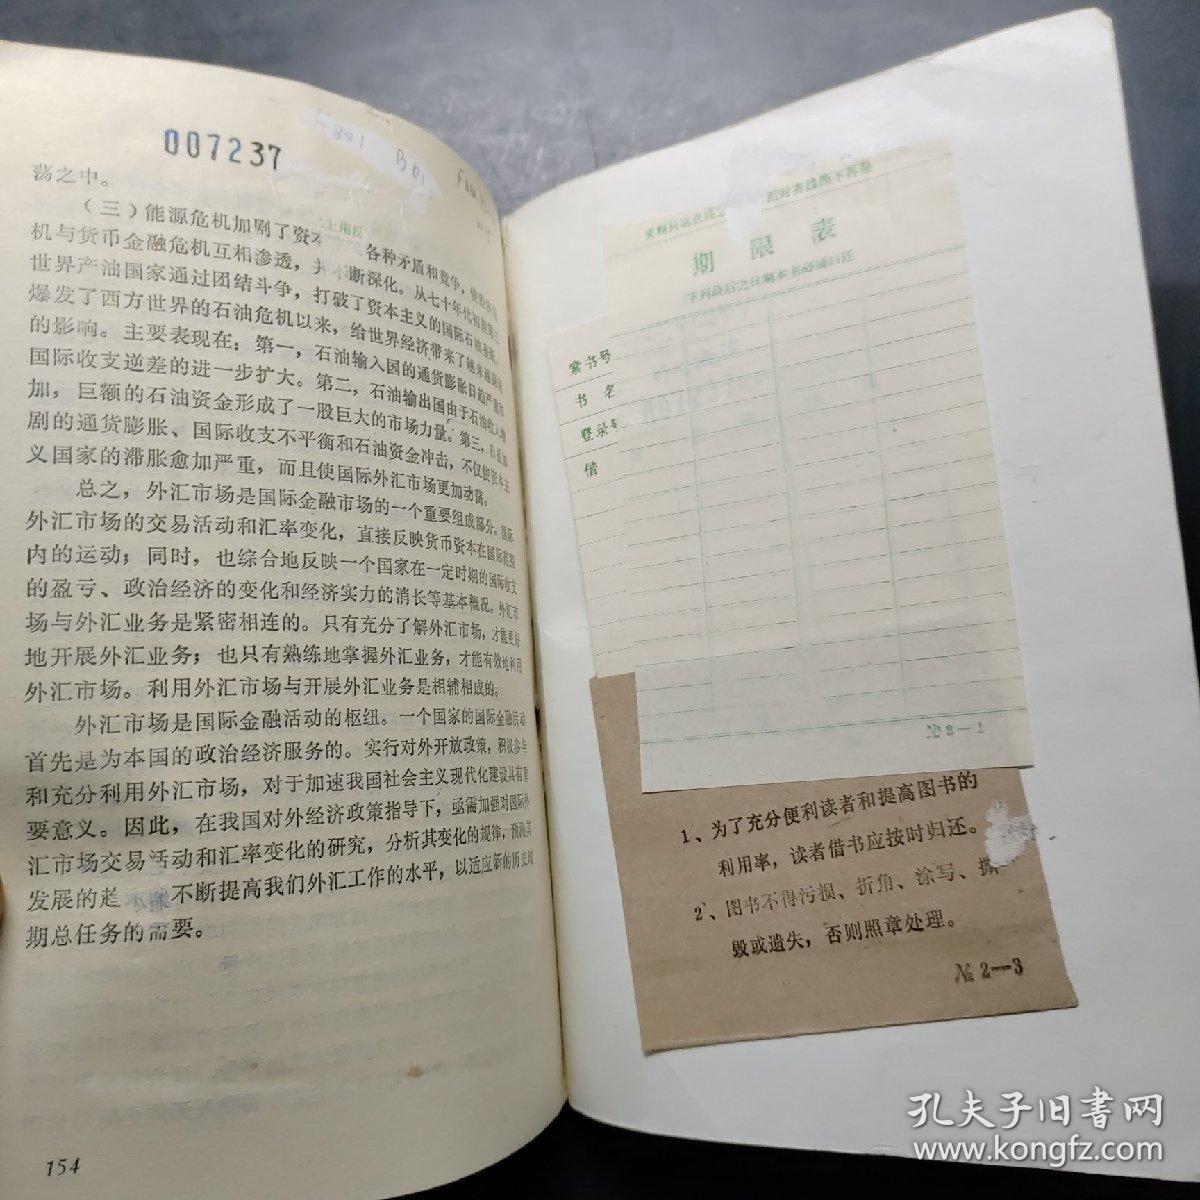 007237
荡之中。
（三）能源危机加剧了资 各种矛盾和竞争，使能源危
机与货币金融危机互相渗透，并不断深化。从七十年代初期第三
世界产油国家通过团结斗争，打破了资本主义的国际石油垄断，
爆发了西方世界的石油危机以来，给世界经济带来了越来越
的影响。主要表现在：第一，石油输入国的通货膨胀日趋严重和
国际收支逆差的进一步扩大。第二，石油输出国由于石油收入增
加，巨额的石油资金形成了一股巨大的市场力量。第三，日益加
剧的通货膨胀、国际收支不平衡和石油资金冲击，不仅使资本主
义国家的滞胀愈加严重，而且使国际外汇市场更加动荡。
总之，外汇市场是国际金融市场的一个重要组成部分。国际
外汇市场的交易活动和汇率变化，直接反映货币资本在国际范围
内的运动；同时，也综合地反映一个国家在一定时期的国际收支
的盈亏、政治经济的变化和经济实力的消长等基本概况。外汇市
场与外汇业务是紧密相连的。只有充分了解外汇市场，才能更好
地开展外汇业务；也只有熟练地掌握外汇业务，才能有效地利用
外汇市场。利用外汇市场与开展外汇业务是相辅相成的。
外汇市场是国际金融活动的枢纽。一个国家的国际金融活动
首先是为本国的政治经济服务的。实行对外开放政策，积极参与
和充分利用外汇市场，对于加速我国社会主义现代化建设具有重
要意义。因此，在我国对外经济政策指导下，亟需加强对国际外
汇市场交易活动和汇率变化的研究，分析其变化的规律，预测其
发展的趋 不断提高我们外汇工作的水平，以适应新的历史时
期总任务的需要。
154
期限表
下列最后之日期本书必须归还
索书号
书名
登录号
借
№2—1
1、为了充分便利读者和提高图书的
利用率，读者借书应按时归还。
2、图书不得污损、折角、涂写、撕
毁或遗失，否则照章处理。
№2—3
孔夫子旧书网
www.kongfz.com